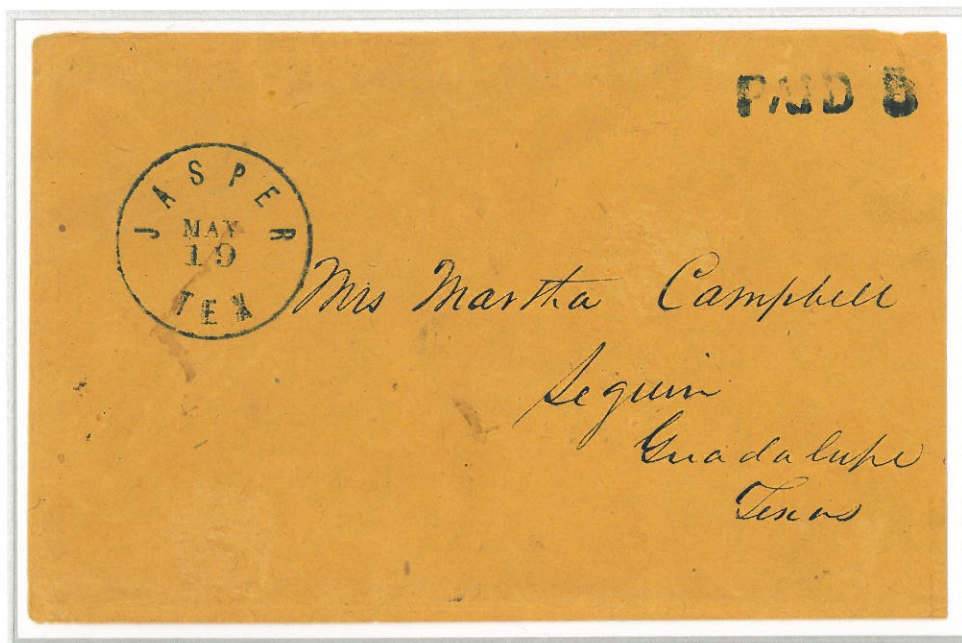 PAID 5
JASPER
MAY
19
TEX
Mrs Martha Campbell
Seguin
Guadalupe
Texas